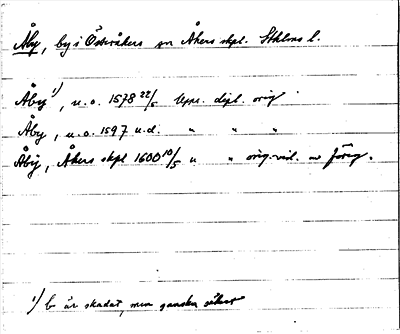 Åby, by i Österåkers sn Åkers skpl. Sthlms l.
Åby¹), u.o. 1578 22/5 Upps. dipl. orig
Åby, u.o. 1597 u.d. " " "
Åbÿ, Åkers skpl 1600 10/5 " " orig.-vid. av föreg.
¹) b är skadat, men ganska säkert